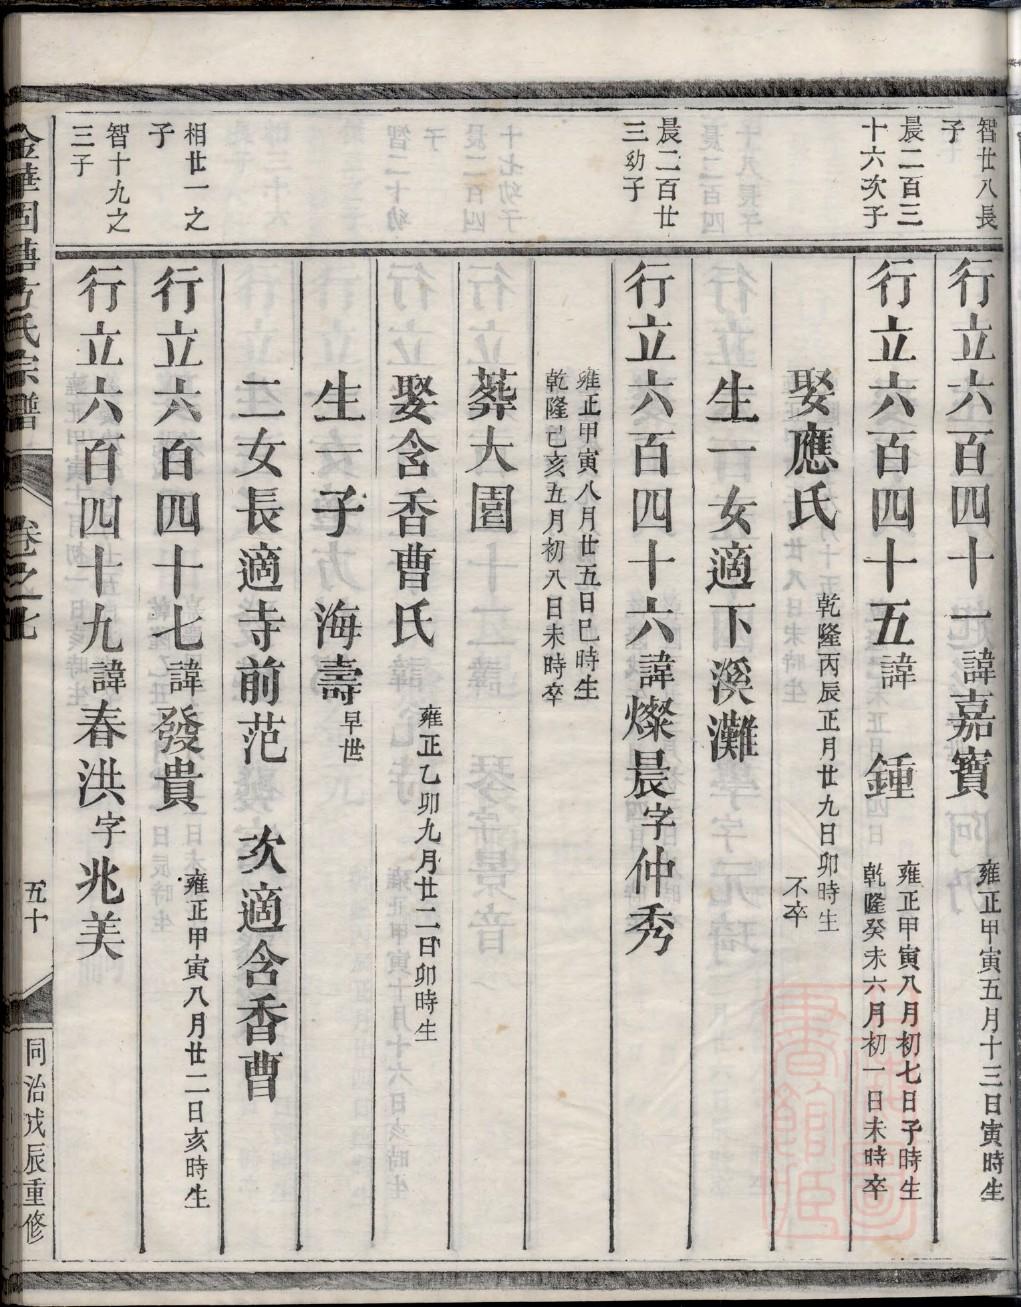 智廿八長
子
行立六百四十一諱嘉寶
雍正甲寅五月十三日寅時生
晨二百三
十六次子
行立六百四十五諱 鍾
雍正甲寅八月初七日子時生
乾隆癸未六月初一日未時卒
娶應氏
乾隆丙辰正月廿九日卯時生
不卒
生一女適下溪灘
晨二百廿
三幼子
行立六百四十六諱燦晨字仲秀
雍正甲寅八月廿五日巳時生
乾隆己亥五月初八日未時卒
葬大園
娶含香曹氏
雍正乙卯九月廿二日卯時生
生一子 海壽早世
二女長適寺前范 次適含香曹
相廿一之
子
行立六百四十七諱發貴
雍正甲寅八月廿二日亥時生
智十九之
三子
行立六百四十九諱春洪字兆美
方氏宗譜
卷之
五十
同治戊辰重修